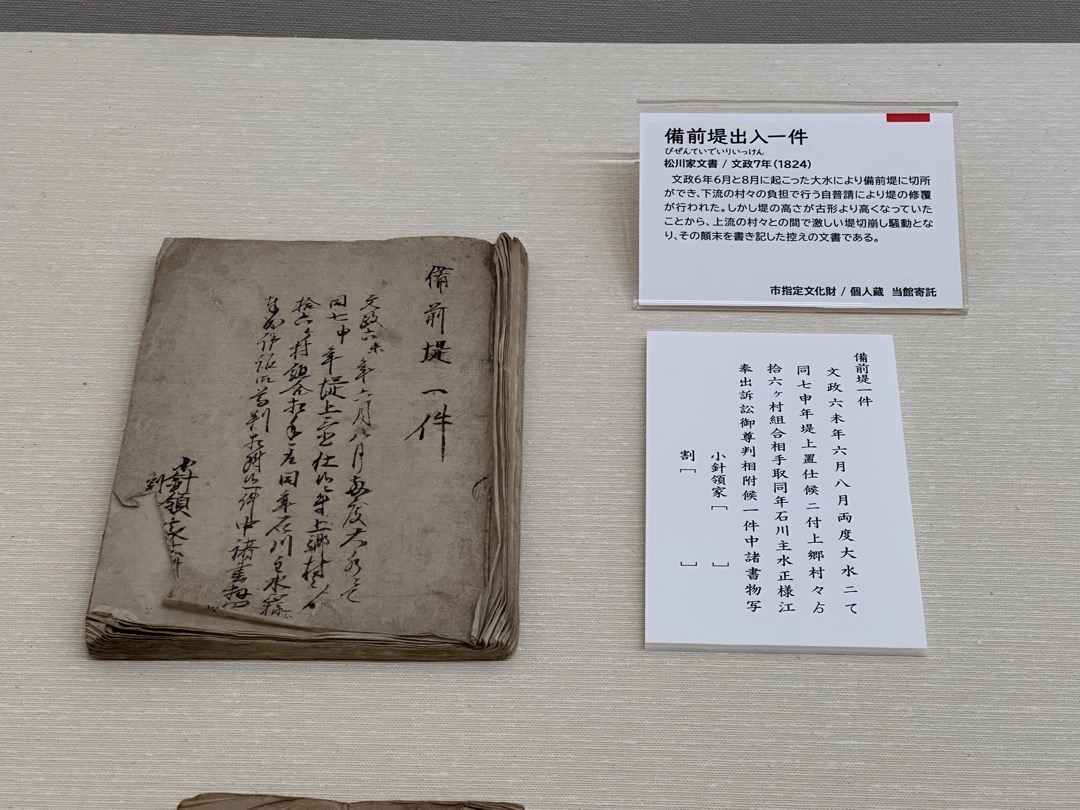 備前堤出入一件
びぜんていでいりいっけん
松川家文書 / 文政7年(1824)
文政6年6月と8月に起こった大水により備前堤に切所
ができ、下流の村々の負担で行う自普請により堤の修覆
が行われた。しかし堤の高さが古形より高くなっていた
ことから、上流の村々との間で激しい堤切崩し騒動とな
り、その顛末を書き記した控えの文書である。
市指定文化財 / 個人蔵 当館寄託
備前堤一件
文政六未年六月八月両度大水ニて
同七申年堤上置仕候ニ付上郷村々ゟ
拾六ヶ村組合相手取同年石川主水正様江
奉出訴訟御尊判相附候一件中諸書物写
小針領家[ ]
割[ ]
備前堤一件
文政六未年六月八月両度大水ニて
同七申年堤上置仕候ニ付上郷村々ゟ
拾六ヶ村組合相手取同年石川主水正様
奉出訴訟御尊判相附候一件中諸書物写
小針領家
割